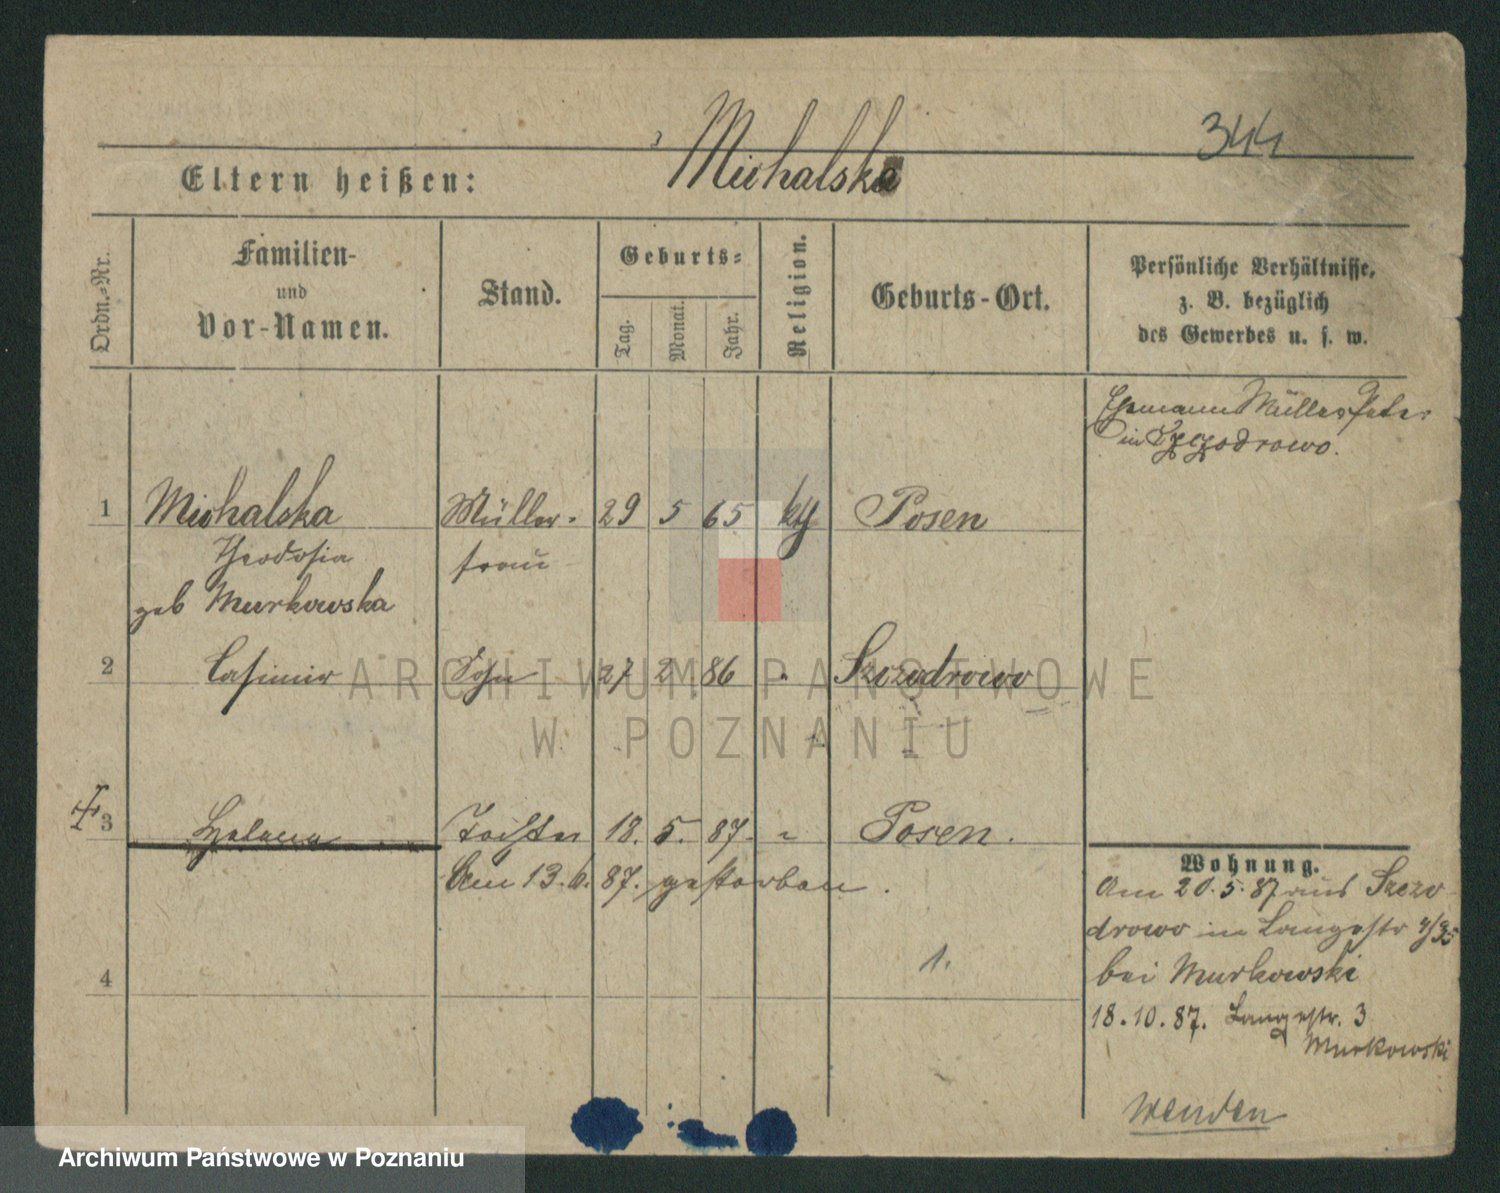 344
Michalska
Eltern heißen:
Ordn.-Nr.
Familien-
und
Vor-Namen.
Stand.
Geburts-
Tag.
Monat.
Jahr.
Religion.
Geburts-Ort.
Persönliche Verhältnisse,
z. B. bezüglich
des Gewerbes u. s. w.
Ehemann Müller Peter
in Szczodrowo.
1 Michalska Müller- 29 5 65 kth Posen
Theodosia frau
geb Murkowska
2 Casimir Sohn 27 2 86 " Szczodrowo
3 Helena Tochter 18. 5. 87. " Posen.
Am 13. 6. 87. gestorben.
4
1.
Wohnung.
Am 20. 5. 87 aus Szczo
drowo in Langestr 4/35
bei Murkowski
18. 10. 87. Langestr. 3
Murkowski
Wenden
ARCHIWUM PAŃSTWOWE
W POZNANIU
Archiwum Państwowe w Poznaniu